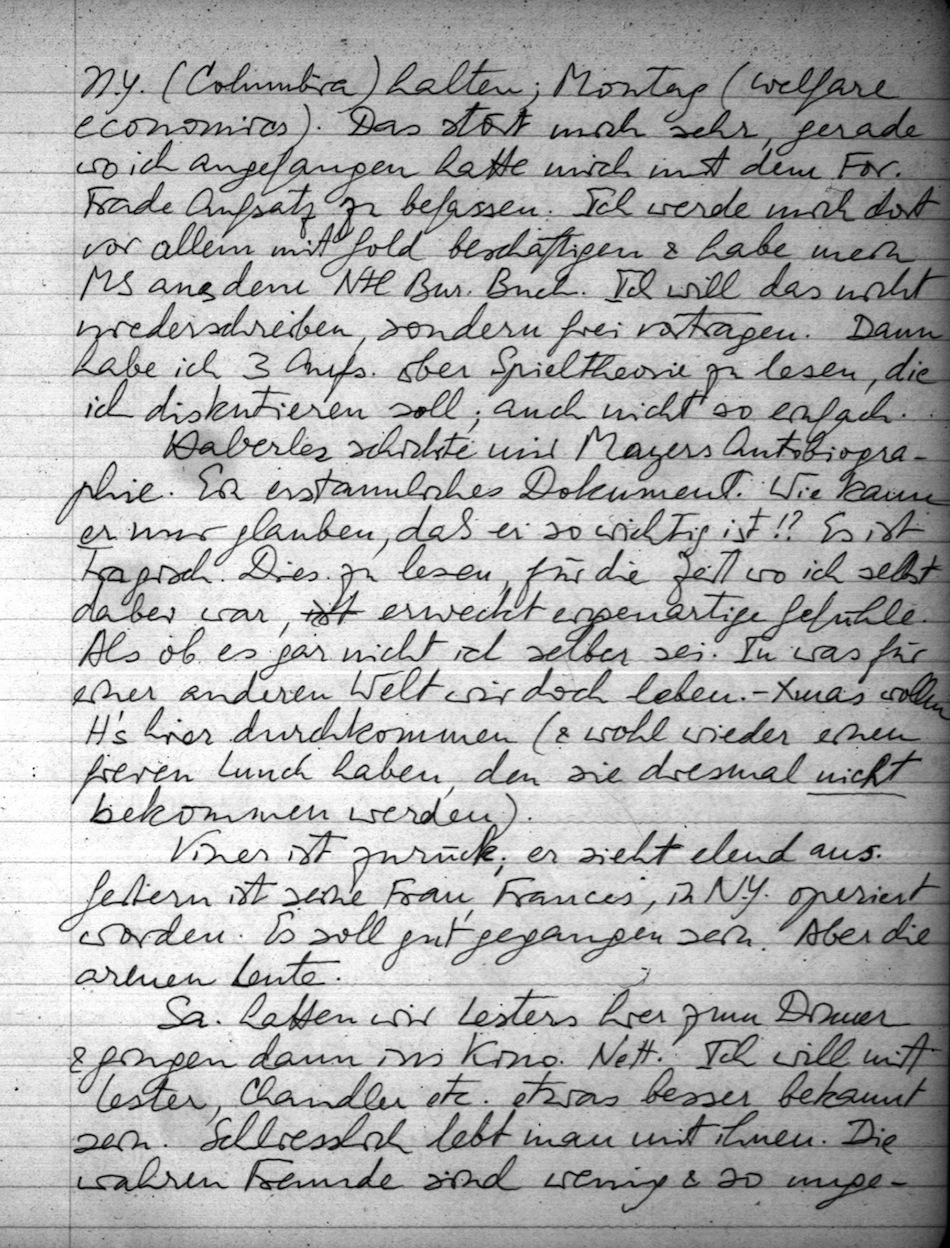 N.Y. (Columbia) halten; Montag (welfare
economics). Das stört mich sehr, gerade
wo ich angefangen hatte mich mit dem For.
Trade Aufsatz zu befassen. Ich werde mich dort
vor allem mit Gold beschäftigen & habe mein
MS aus dem Ntl Bur. Buch. Ich will das nicht
niederschreiben, sondern frei vortragen. Dann
habe ich 3 Aufs. über Spieltheorie zu lesen, die
ich diskutieren soll; auch nicht so einfach.
Haberler schickte mir Mayers Autobiogra-
phie. Ein erstaunliches Dokument. Wie kann
er nur glauben, daß er so wichtig ist!? Es ist
tragisch. Dies zu lesen, für die Zeit wo ich selbst
dabei war, ist erweckt eigenartige Gefühle.
Als ob es gar nicht ich selber sei. In was für
einer anderen Welt wir doch leben. – Xmas wollen
H's hier durchkommen (& wohl wieder einen
freien Lunch haben, den sie diesmal nicht
bekommen werden).
Viner ist zurück; er sieht elend aus.
Gestern ist seine Frau, Frances, in N.Y. operiert
worden. Es soll gut gegangen sein. Aber die
armen Leute.
Sa. hatten wir Lesters hier zum Dinner
& gingen dann ins Kino. Nett. Ich will mit
Lester, Chandler etc. etwas besser bekannt
sein. Schliesslich lebt man mit ihnen. Die
wahren Freunde sind wenig & so unge-